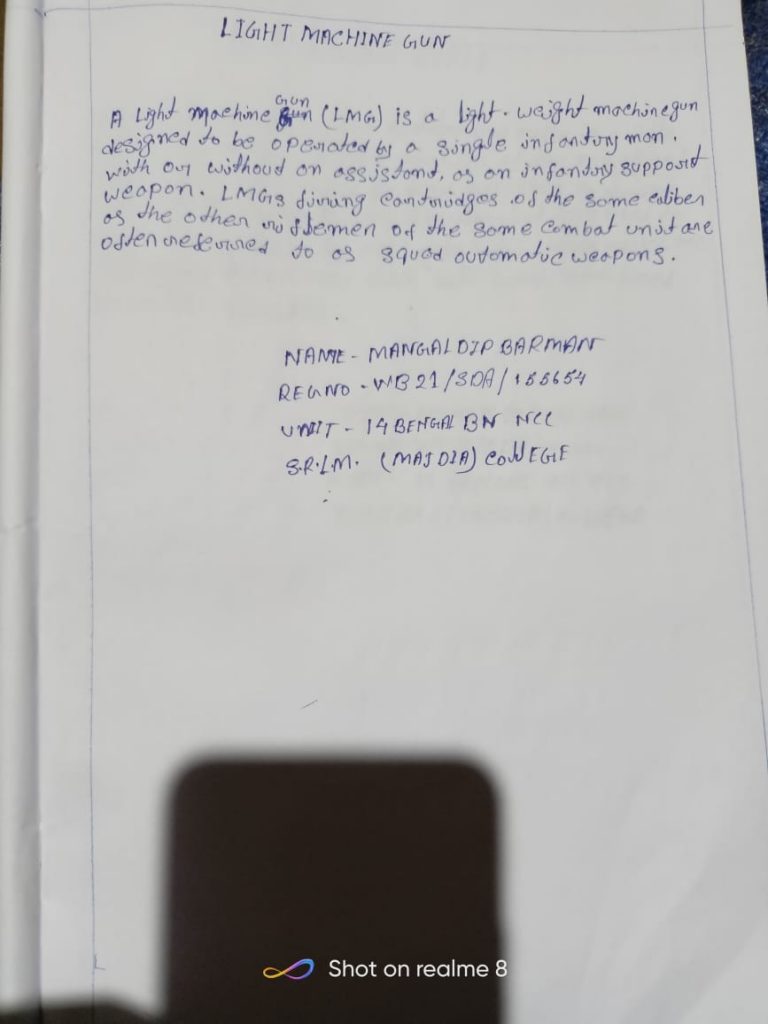 LIGHT MACHINE GUN
A Light Machine Gun (LMG) is a light-weight machinegun
designed to be operated by a single infantry man.
with or without an assistant, as an infantry support
weapon. LMGs firing cartridges of the same caliber
as the other riflemen of the same combat unit are
often referred to as squad automatic weapons.
NAME - MANGALDIP BARMAN
REGNO - WB21/SDA/155654
UNIT - 14 BENGAL BN NCC
S.R.L.M. (MAJDIA) COLLEGE
Shot on realme 8